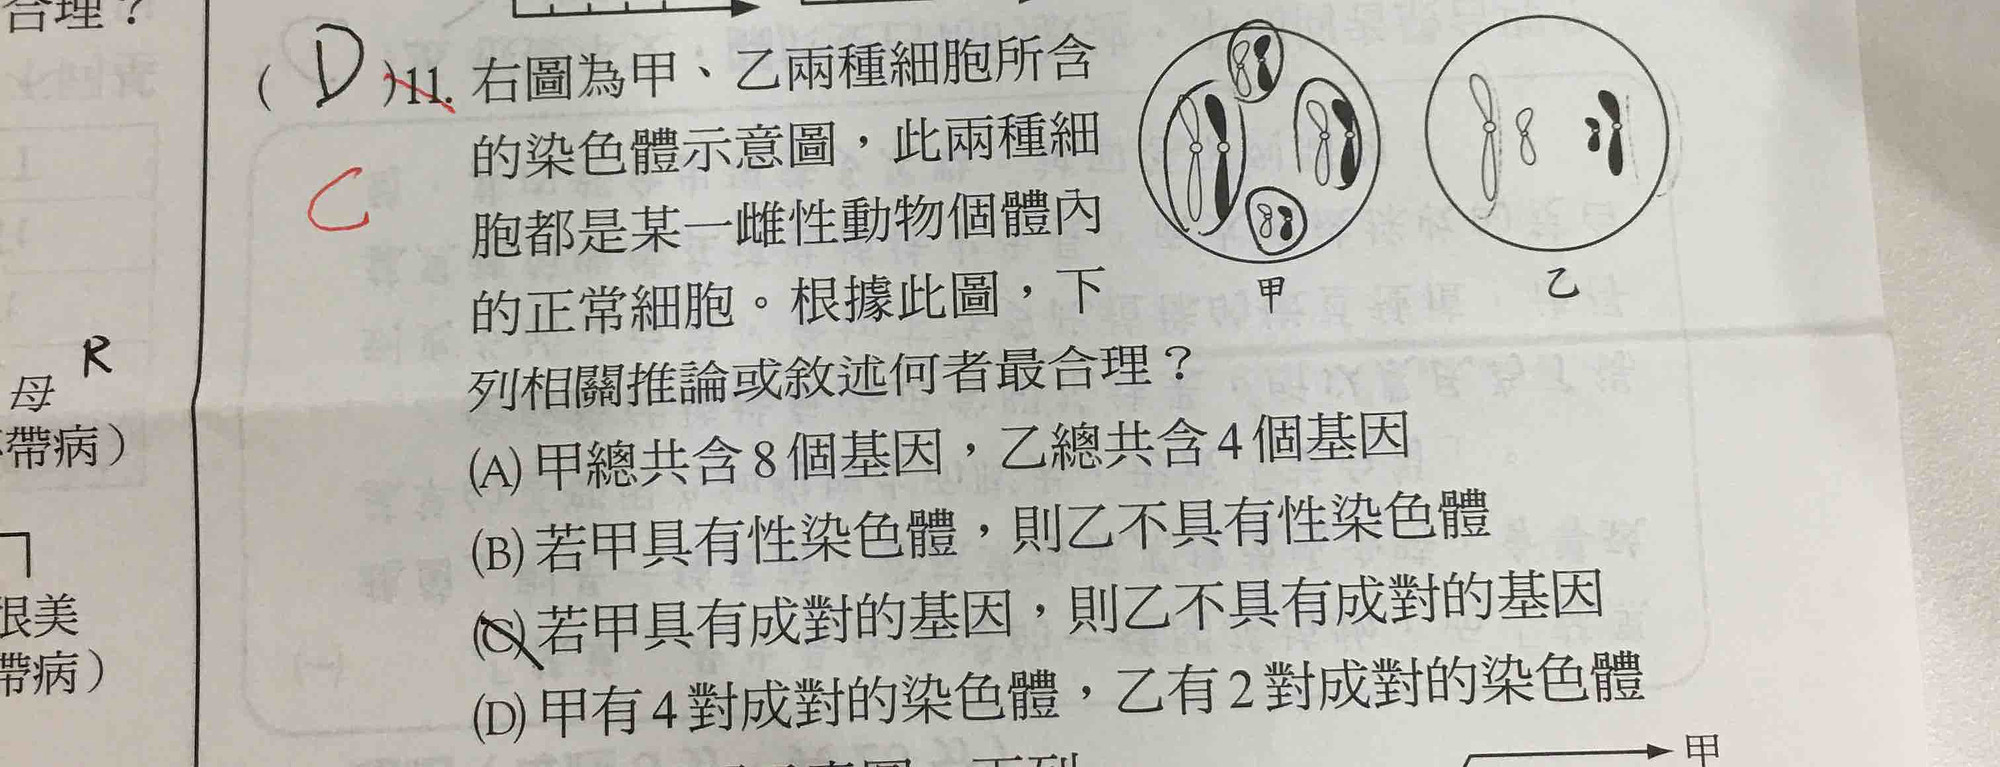 合理？
(D)11. 右圖為甲、乙兩種細胞所含
的染色體示意圖，此兩種細
C
胞都是某一雌性動物個體內
的正常細胞。根據此圖，下
甲
乙
列相關推論或敘述何者最合理？
(A) 甲總共含8個基因，乙總共含4個基因
(B) 若甲具有性染色體，則乙不具有性染色體
(C) 若甲具有成對的基因，則乙不具有成對的基因
(D) 甲有4對成對的染色體，乙有2對成對的染色體
R
母
帶病）
很美
帶病）
甲